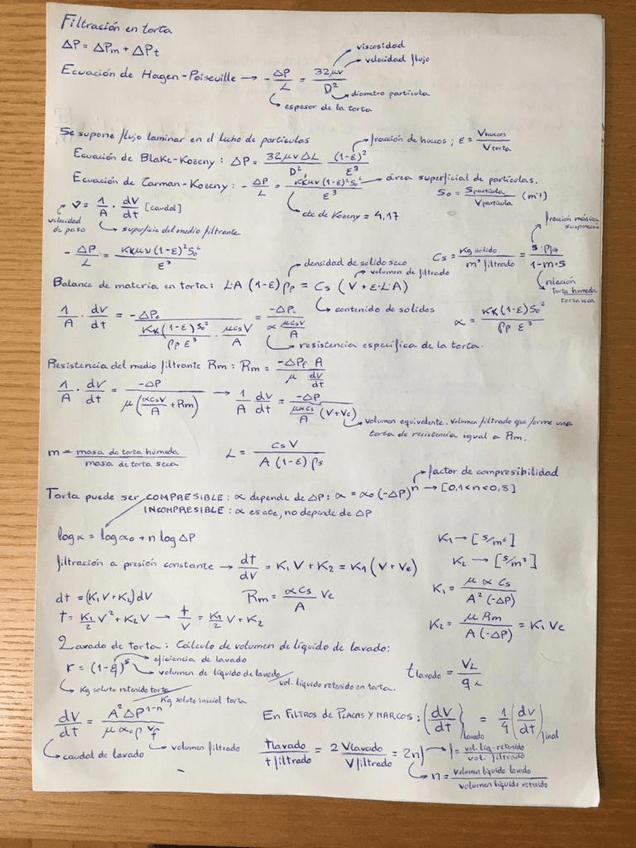 Filtración en torta
ΔP = ΔPm + ΔPt
viscosidad
velocidad flujo
Ecuación de Hagen-Poiseuille → - ΔP/L = 32μv/D²
diametro partícula
espesor de la torta
Se supone flujo laminar en el lecho de partículas
fracción de huecos; ε = Vhuecos/Vtorta
Ecuación de Blake-Kozeny: ΔP = 32μvΔL/D² (1-ε)²/ε³
Ecuación de Carman-Kozeny: - ΔP/L = KKμv(1-ε)²S₀²/ε³
área superficial de partículas.
S₀ = Spartícula/Vpartícula (m⁻¹)
cte de Kozeny = 4,17
v = 1/A · dV/dt [caudal]
velocidad de paso
superficie del medio filtrante
- ΔP/L = KKμv(1-ε)²S₀²/ε³
fracción másica suspensión
Cs = Kg sólido/m³ filtrado = s·ρ/1-m·s
relación torta húmeda torta seca
densidad de solido seco
volumen de filtrado
Balance de materia en torta: L·A (1-ε) ρp = Cs (V + ε·L·A)
contenido de solidos
1/A · dV/dt = -ΔPc/(KK(1-ε)S₀²/ρp ε³ · μCsV/A) = -ΔPc/(α μCsV/A)
α = KK(1-ε)S₀²/ρp ε³
resistencia especifica de la torta.
Resistencia del medio filtrante Rm: Rm = -ΔPf A/μ dV/dt
1/A · dV/dt = -ΔP/μ(αCsV/A + Rm) → 1/A dV/dt = -ΔP/(μαCs/A (V+Ve))
volumen equivalente. Volumen filtrado que forme una
torta de resistencia igual a Rm.
m = masa de torta húmeda/masa de torta seca
L = CsV/A (1-ε) ρs
factor de compresibilidad
Torta puede ser COMPRESIBLE: α depende de ΔP: α = α₀(-ΔP)ⁿ → [0,1<n<0,8]
INCOMPRESIBLE: α es cte, no depende de ΔP
log α = log α₀ + n log ΔP
K₁ → [s/m⁶]
filtración a presión constante → dt/dV = K₁V + K₂ = K₁(V+Ve)
K₂ → [s/m³]
dt = (K₁V + K₂)dV
Rm = αCs/A Ve
K₁ = μ α Cs/A² (-ΔP)
t = K₁/2 V² + K₂V → t/V = K₁/2 V + K₂
K₂ = μ Rm/A (-ΔP) = K₁Ve
Lavado de torta: Cálculo de volumen de líquido de lavado:
eficiencia de lavado
r = (1-q)
volumen de líquido de lavado/vol. líquido retenido en torta.
t lavado = VL/qL
Kg soluto retenido torta/Kg soluto inicial torta
dV/dt = A²ΔP¹⁻ⁿ/μ α₀ρ Vf
En FILTROS DE PLACAS Y MARCOS: (dV/dt)lavado = 1/4 (dV/dt)final
caudal de lavado
volumen filtrado
t lavado/t filtrado = 2 Vlavado/Vfiltrado = 2nf
f = vol. líq. retenido/vol. filtrado
n = volumen líquido lavado/volumen líquido retenido